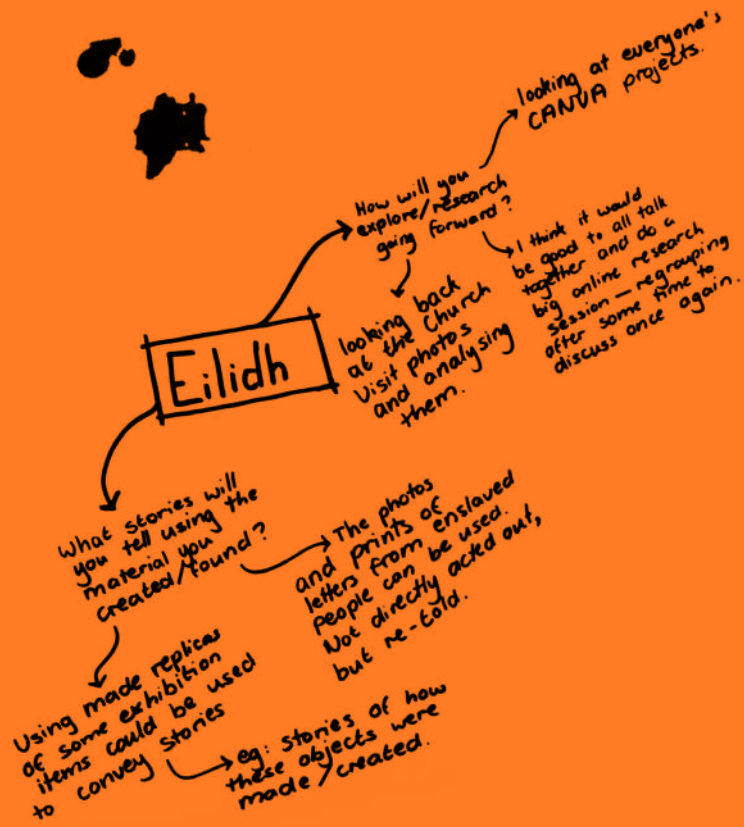 Eilidh
How will you
explore/research
going forward?
looking at everyone's
CANVA projects.
I think it would
be good to all talk
together and do a
big online research
session — regrouping
after some time to
discuss once again.
looking back
at the Church
Visit photos
and analysing
them.
What stories will
you tell using the
material you
created/found?
The photos
and prints of
letters from enslaved
people can be used.
Not directly acted out,
but re-told.
Using made replicas
of some exhibition
items could be used
to convey stories
eg: stories of how
these objects were
made/created.